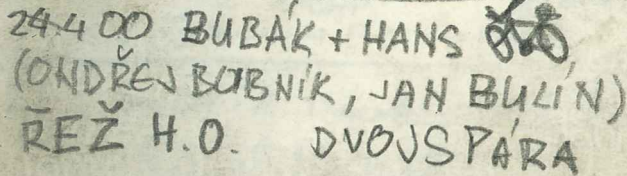 24.4 00 BUBÁK + HANS
(ONDŘEJ BUBNÍK, JAN BULÍN)
ŘEŽ H.O. DVOJSPÁRA